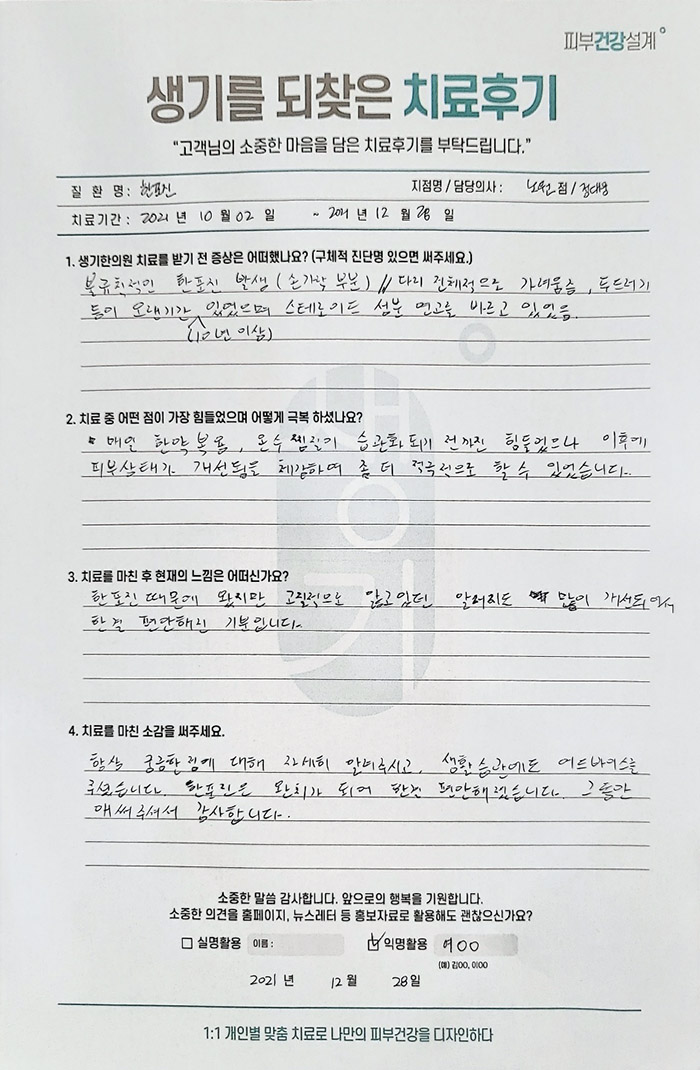 피부건강설계
생기를 되찾은 치료후기
"고객님의 소중한 마음을 담은 치료후기를 부탁드립니다."
질 환 명 : 한포진 지점명 / 담당의사 : 노원점 /
치료기간 : 2021 년 10 월 02 일 ~ 2021 년 12 월 28 일
1. 생기한의원 치료를 받기 전 증상은 어떠했나요? (구체적 진단명 있으면 써주세요.)
불규칙적인 한포진 발생 (손가락 부분) // 다리 전체적으로 가려움증, 두드러기
등이 오랜기간 있었으며 스테로이드 성분 연고를 바르고 있었음.
(10년 이상)
2. 치료 중 어떤 점이 가장 힘들었으며 어떻게 극복 하셨나요?
매일 한약복용, 온수찜질이 습관화 되기 전까진 힘들었으나 이후에
피부상태가 개선됨을 체감하여 좀 더 적극적으로 할 수 있었습니다.
3. 치료를 마친 후 현재의 느낌은 어떠신가요?
한포진 때문에 왔지만 고질적으로 앓고있던 알러지도 많이 개선되어서
한결 편안해진 기분입니다.
4. 치료를 마친 소감을 써주세요.
항상 궁금한점에 대해 자세히 알려주시고, 생활습관에도 어드바이스를
주셨습니다. 한포진은 완치가 되어 한결 편안해졌습니다. 그동안
애써주셔서 감사합니다.
소중한 말씀 감사합니다. 앞으로의 행복을 기원합니다.
소중한 의견을 홈페이지, 뉴스레터 등 홍보자료로 활용해도 괜찮으신가요?
실명활용 이름 : 익명활용 여OO
(예) 김OO, 이OO
2021 년 12 월 28 일
1:1 개인별 맞춤 치료로 나만의 피부건강을 디자인하다
생기